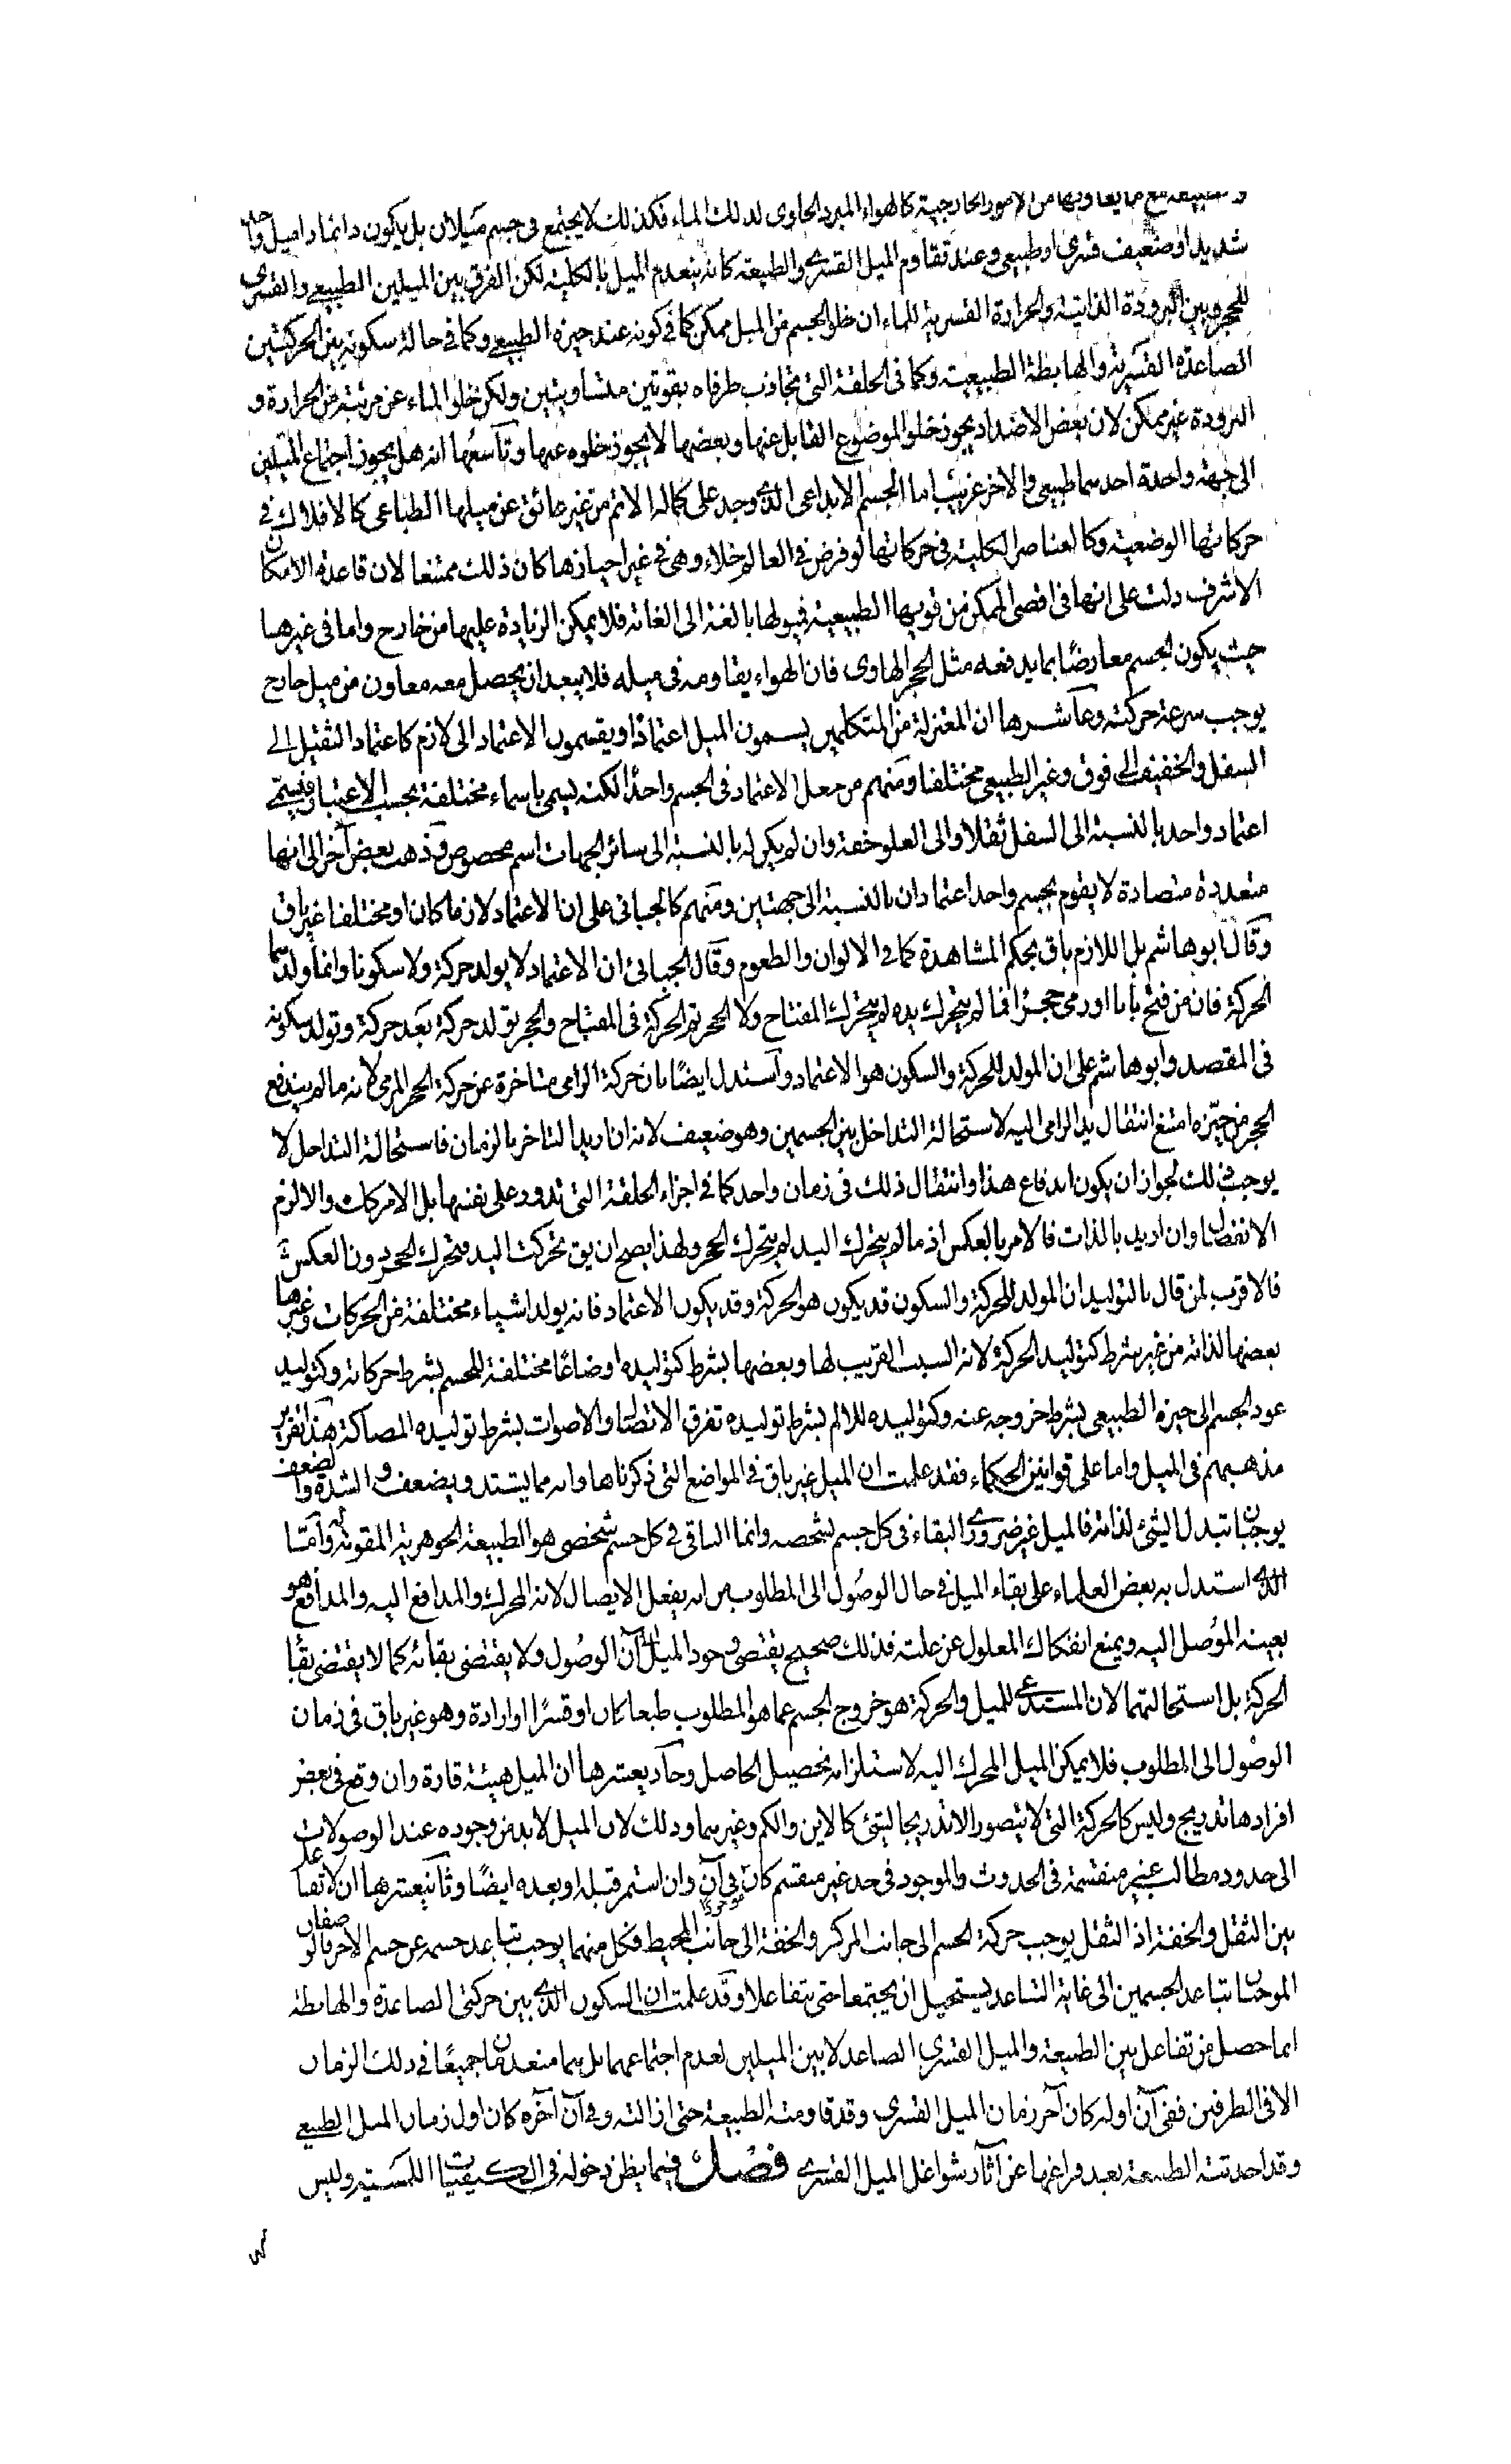 والطبيعة مع ما يعاوقها من الامور الخارجية كالهواء المبرد الحاوى لذلك الماء فكذلك لا يجتمع فى جسم ميلان بل يكون دائما ذا ميل واحد
شديد او ضعيف قسرى او طبيعى وعند تقاوم الميل القسرى والطبيعة كانه ينعدم الميل بالكلية لكن الفرق بين الميلين الطبيعى والقسرى
للحجر وبين البرودة الذاتية والحرارة القسرية للماء ان خلو الجسم من الميل ممكن كما فى كونه عند حيزه الطبيعى وكما فى حالة سكونه بين الحركتين
الصاعدة القسرية والهابطة الطبيعية وكما فى الحلقة التى تجاذب طرفاه بقوتين متساويتين ولكن خلو الماء عن مرتبة من الحرارة و
البرودة غير ممكن لان بعض الاضداد يجوز خلو الموضوع القابل عنها وبعضها لا يجوز خلوه عنها وتاسعها انه هل يجوز اجتماع الميلين
الى جهة واحدة احدهما طبيعى والاخر غريب اما الجسم الابداعى الذى وجد على كماله الاتم من غير عائق عن ميلها الطباعى كالافلاك فى
حركاتها الوضعية وكالعناصر الكلية فى حركاتها لو فرض فى العالم خلاء وهى فى غير احيازها كان ذلك ممتنعا لان قاعدة الامكان
الاشرف دلت على انها فى اقصى الممكن من قوتها الطبيعية فميولها بالغة الى الغاية فلا يمكن الزيادة عليها من خارج واما فى غيرها
حيث يكون الجسم معارضًا بما يدفعه مثل الحجر الهاوى فان الهواء يقاومه فى ميله فلا يبعد ان يحصل معه معاون من ميل خارج
يوجب سرعة حركته وعاشرها ان المعتزلة من المتكلمين يسمون الميل اعتمادًا ويقسمون الاعتماد الى لازم كاعتماد الثقيل الى
السفل والخفيف الى فوق وغير الطبيعى مختلفا ومنهم من جعل الاعتماد فى الجسم واحدًا لكنه يسمى باسماء مختلفة بحسب الاعتبار فيسمى
اعتماد واحد بالنسبة الى السفل ثقلا والى العلو خفة وان لم يكن له بالنسبة الى سائر الجهات اسم مخصوص وذهب بعض آخر الى انها
متعددة متضادة لا يقوم بجسم واحد اعتمادان بالنسبة الى جهتين ومنهم كالجبائى على ان الاعتماد لازما كان او مختلفا غير باق
وقال ابو هاشم بل اللازم باق بحكم المشاهدة كما فى الالوان والطعوم وقال الجبائى ان الاعتماد لا يولد حركة ولا سكونا وانما يولدهما
الحركة فان من فتح بابا او رمى حجرًا فما لم يتحرك يده لم يتحرك المفتاح ولا الحجر ثم الحركة فى المفتاح والحجر تولد حركة بعد حركة وتولد سكونه
فى المقصد وابو هاشم على ان المولد للحركة والسكون هو الاعتماد واستدل ايضًا بان حركة الرامى متاخرة عن حركة الحجر المرمى لانه ما لم يندفع
الحجر من حيّزه امتنع انتقال يد الرامى اليه لاستحالة التداخل بين الجسمين وهو ضعيف لانه ان اريد التاخر بالزمان فاستحالة التداخل لا
يوجب ذلك لجواز ان يكون اندفاع هذا وانتقال ذلك فى زمان واحد كما فى اجزاء الحلقة التى تدور على نفسها بل الامر كك والا لزم
الانفصال وان اريد بالذات فالامر بالعكس اذ ما لم يتحرك اليد لم يتحرك الحجر ولهذا يصح ان يق تحركت اليد فتحرك الحجر دون العكس
فالاقرب لمن قال بالتوليد ان المولد للحركة والسكون قد يكون هو الحركة وقد يكون الاعتماد فانه يولد اشياء مختلفة من الحركات وغيرها
بعضها لذاته من غير شرط كتوليد الحركة لانه السبب القريب لها وبعضها بشرط كتوليده اوضاعًا مختلفة للجسم بشرط حركاته وكتوليد
عود الجسم الى حيزه الطبيعى بشرط خروجه عنه وكتوليده للالم بشرط توليده تفرق الاتصال والاصوات بشرط توليده المصاكة هذا تقرير
مذهبهم فى الميل واما على قوانين الحكماء فقد علمت ان الميل غير باق فى المواضع التى ذكرناها وانه مما يشتد ويضعف والشدة والضعف
يوجبان تبدل الشئ لذاته فالميل غير ضرورى البقاء فى كل جسم بشخصه وانما الباقى فى كل جسم شخصى هو الطبيعة الجوهرية المقومة له وامّا
الذى استدل به بعض العلماء على بقاء الميل فى حال الوصول الى المطلوب من انه يفعل الايصال لانه المحرك والمدافع اليه والمدافع هو
بعينه الموصل اليه ويمنع انفكاك المعلول عن علته فذلك صحيح يقتضى وجود الميل فى آن الوصول ولا يقتضى بقائه كما لا يقتضى بقاء
الحركة بل استحالتهما لان المستدعى للميل والحركة هو خروج الجسم عما هو المطلوب طبعا كان او قسرًا او ارادة وهو غير باق فى زمان
الوصول الى المطلوب فلا يمكن الميل المحرك اليه لاستلزامه تحصيل الحاصل وحاديعشرها ان الميل هيئة قارة وان وقع فى بعض
افرادها تدريج وليس كالحركة التى لا يتصور الا تدريجا لشئ كالاين والكم وغيرهما وذلك لان الميل لا بد من وجوده عند الوصولات
الى حدود مطالب غير منقسمة فى الحدوث والموجود فى حد غير منقسم كان موجودًا فى آن وان استمر قبله او بعده ايضًا وثانيعشرها ان لا تفاعل
بين الثقل والخفة اذ الثقل يوجب حركة الجسم الى جانب المركز والخفة الى جانب المحيط فكل منهما يوجب تباعد جسمه عن جسم الاخر فالوصفان
الموجبان تباعد الجسمين الى غاية التباعد يستحيل ان يجتمعا حتى يتفاعلا وقد علمت ان السكون الذى بين حركتى الصاعدة والهابطة
انما حصل من تفاعل بين الطبيعة والميل القسرى الصاعد لا بين الميلين لعدم اجتماعهما بل هما منعدمان جميعًا فى ذلك الزمان
الا فى الطرفين ففى آن اوله كان آخر زمان الميل القسرى وقد قاومته الطبيعة حتى ازالته وفى آن آخره كان اول زمان الميل الطبيعى
وقد احدثته الطبيعة بعد فراغها عن آثار شواغل الميل القسرى فصل فيما يظن دخوله فى الكيفيات اللمسية وليس